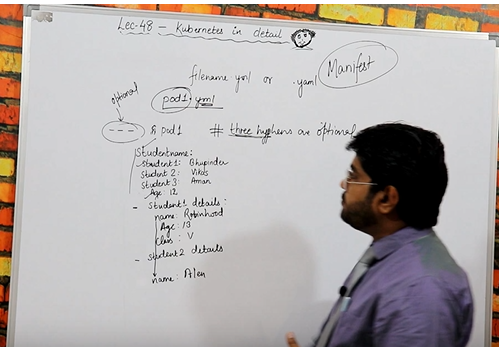 Lec-48 - Kubernetes in detail
filename yml or .yaml
Manifest
pod1.yml
optional
--- & pod1 # three hyphens are optional
Studentname:
Student1: Bhupinder
Student 2: Vikas
Student 3: Aman
Age: 12
- Student1 details:
name: Robinhood
Age: 13
Class: V
- Student2 details
name: Alen